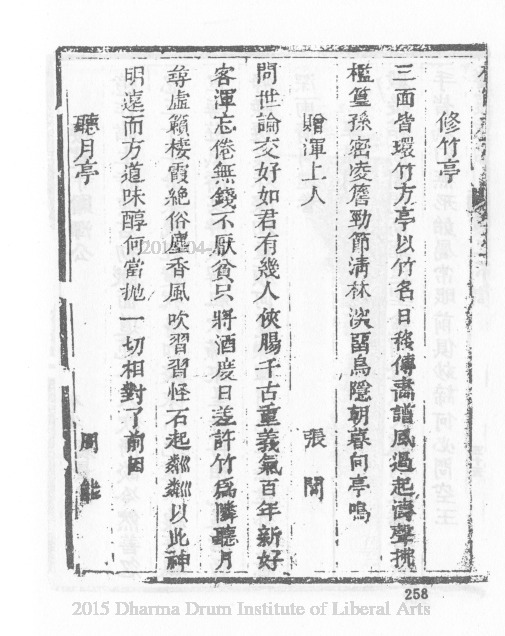 修竹亭
三面皆環竹方亭以竹名日移傳齋譜風過起濤聲擁
檻篁孫密凌簷勁節清林深留鳥隱朝暮向亭鳴
贈渾上人 張閣
問世論交好如君有幾人俠腸千古重義氣百年新好
客渾忘倦無錢不厭貧只將酒度日差許竹為隣聽月
尋虛籟棲霞絕俗塵香風吹習習怪石起粼粼以此神
明遠而方道味醇何當拋一切相對了前因
聽月亭 周能
258
2015 Dharma Drum Institute of Liberal Arts